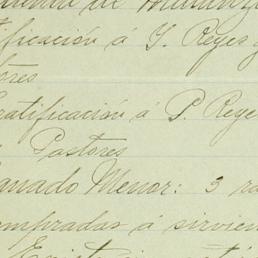 de
ificación á Y. Reyes y
ores
ratificación á P. Reye
Pastores
anado Menor: 3
mpradas á sirvien